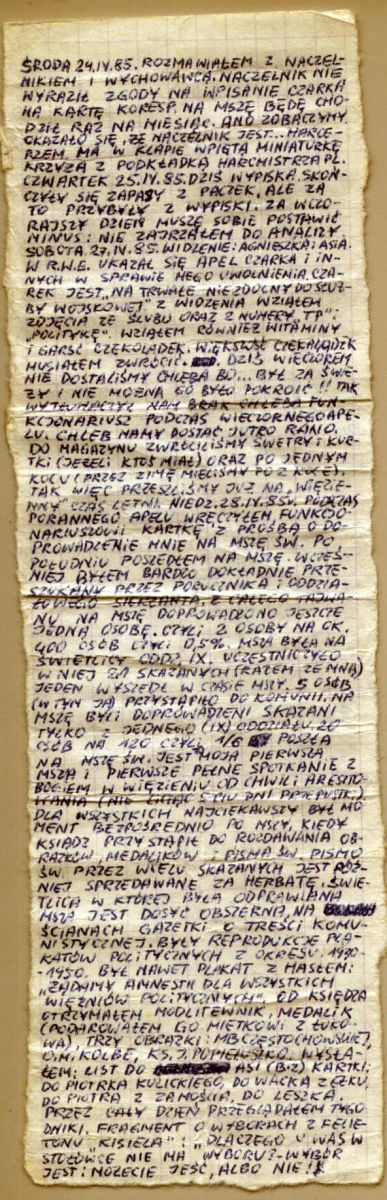 ŚRODA 24.IV.85. ROZMAWIAŁEM Z NACZEL-
NIKIEM I WYCHOWAWCĄ. NACZELNIK NIE
WYRAZIŁ ZGODY NA WPISANIE CZARKA
NA KARTĘ KORESP. NA MSZĘ BĘDĘ CHO-
DZIŁ RAZ NA MIESIĄC. ANO ZOBACZYMY.
OKAZAŁO SIĘ, ŻE NACZELNIK JEST... HARCE-
RZEM. MA W KLAPIE WPIĘTĄ MINIATURKĘ
KRZYŻA Z PODKŁADKĄ HARCMISTRZA PL.
CZWARTEK 25.IV.85. DZIŚ WYPISKA. SKOŃ-
CZYŁY SIĘ ZAPASY Z PACZEK, ALE ZA
TO PRZYBYŁY Z WYPISKI. ZA WCZO-
RAJSZY DZIEŃ MUSZĘ SOBIE POSTAWIĆ
MINUS: NIE ZAJRZAŁEM DO ANALIZY
SOBOTA 27.IV.85. WIDZENIE: AGNIESZKA I ASIA.
W R.W.E. UKAZAŁ SIĘ APEL CZARKA I IN-
NYCH W SPRAWIE MEGO UWOLNIENIA. CZA-
REK JEST „NA TRWAŁE NIEZDOLNY DO SŁUŻ-
BY WOJSKOWEJ" Z WIDZENIA WZIĄŁEM
ZDJĘCIA ZE ŚLUBU ORAZ 2 NUMERY „TP";
„POLITYKĘ". WZIĄŁEM RÓWNIEŻ WITAMINY
I GARŚĆ CZEKOLADEK. WIĘKSZOŚĆ CZEKOLADEK
MUSIAŁEM ZWRÓCIĆ. DZIŚ WIECZOREM
NIE DOSTALIŚMY CHLEBA BO... BYŁ ZA ŚWIE-
ŻY I NIE MOŻNA GO BYŁO POKROIĆ!! TAK
WYTŁUMACZYŁ NAM BRAK CHLEBA FUN-
KCJONARIUSZ PODCZAS WIECZORNEGO APE-
LU. CHLEB MAMY DOSTAĆ JUTRO RANO.
DO MAGAZYNU ZWRÓCILIŚMY SWETRY I KUR-
TKI (JEŻELI KTOŚ MIAŁ) ORAZ PO JEDNYM
KOCU (PRZEZ ZIMĘ MIELIŚMY PO 2 KOCE).
TAK WIĘC PRZESZLIŚMY JUŻ NA „WIĘZIE-
NNY" CZAS LETNI. NIEDZ. 28.IV.85r. PODCZAS
PORANNEGO APELU WRĘCZYŁEM FUNKCJO-
NARIUSZOWI KARTKĘ Z PROŚBĄ O DO-
PROWADZENIE MNIE NA MSZĘ ŚW. PO
POŁUDNIU POSZEDŁEM NA MSZĘ. WCZEŚ-
NIEJ BYŁEM BARDZO DOKŁADNIE PRZE-
SZUKANY PRZEZ PORUCZNIKA I ODDZIA-
ŁOWEGO SIERŻANTA. Z CAŁEGO PAJWA-
NU NA MSZĘ DOPROWADZONO JESZCZE
JEDNĄ OSOBĘ. CZYLI 2 OSOBY NA OK.
400 OSÓB CZYLI 0,5%. MSZA BYŁA NA
ŚWIETLICY ODDZ IX. UCZESTNICZYŁO
W NIEJ 21 SKAZANYCH (RAZEM ZE MNĄ)
JEDEN WYSZEDŁ W CZASIE MSZY. 5 OSÓB
(W TYM JA) PRZYSTĄPIŁO DO KOMUNII. NA
MSZĘ BYLI DOPROWADZENI SKAZANI
TYLKO Z JEDNEGO (IX) ODDZIAŁU. 20
OSÓB NA 120 CZYLI 1/6 POSZŁA
NA MSZĘ ŚW. JEST MOJA PIERWSZA
MSZA I PIERWSZE PEŁNE SPOTKANIE Z
BOGIEM W WIĘZIENIU OD CHWILI ARESZTO-
WANIA (NIE LICZĄC 5-CIU DNI PRZEPUSTKI).
DLA WSZYSTKICH NAJCIEKAWSZY BYŁ MO-
MENT BEZPOŚREDNIO PO MSZY, KIEDY
KSIĄDZ PRZYSTĄPIŁ DO ROZDAWANIA OB-
RAZKÓW, MEDALIKÓW I PISMA ŚW. PISMO
ŚW. PRZEZ WIELU SKAZANYCH JEST PÓŹ-
NIEJ SPRZEDAWANE ZA HERBATĘ. ŚWIE-
TLICA W KTÓREJ BYŁA ODPRAWIANA
MSZA JEST DOSYĆ OBSZERNA, NA
ŚCIANACH GAZETKI O TREŚCI KOMU-
NISTYCZNEJ. BYŁY REPRODUKCJE PLA-
KATÓW POLITYCZNYCH Z OKRESU
1950. BYŁ NAWET PLAKAT Z HASŁEM:
„ŻĄDAMY AMNESTII DLA WSZYSTKICH
WIĘŹNIÓW POLITYCZNYCH". OD KSIĘDZA
OTRZYMAŁEM MODLITEWNIK, MEDALIK
(PODAROWAŁEM GO MIETKOWI Z ŁUKO-
WA), TRZY OBRAZKI: MB CZĘSTOCHOWSKIEJ,
O.M. KOLBE, KS. J. POPIEŁUSZKO. WYSŁA-
ŁEM: LIST DO ASI (B-2) KARTKI:
DO PIOTRKA KULICKIEGO, DO WACKA Z EŁKU,
DO PIOTRA Z ZAMOŚCIA, DO LESZKA.
PRZEZ CAŁY DZIEŃ PRZEGLĄDAŁEM TYGO
DNIKI. FRAGMENT O WYBORACH Z FELIE-
TONU „KISIELA": „DLACZEGO U WAS W
STOŁÓWCE NIE MA WYBORU? – WYBÓR
JEST: MOŻECIE JEŚĆ, ALBO NIE!".